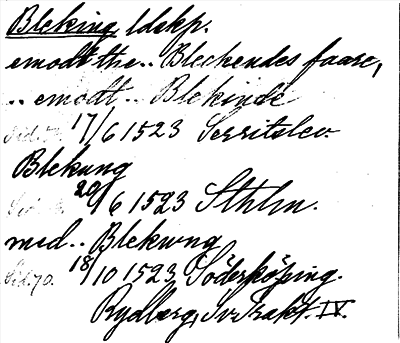 Bleking ldskp.
emodt the.. Bleckendes faare,
.. emodt.. Blekinde
17/6 1523 Serritslev.
Blekung
20/6 1523 Sthlm.
med.. Blekwng
Sid. 70. 18/10 1523 Söderköping.
Rydberg, Sv. Trakt. IV.